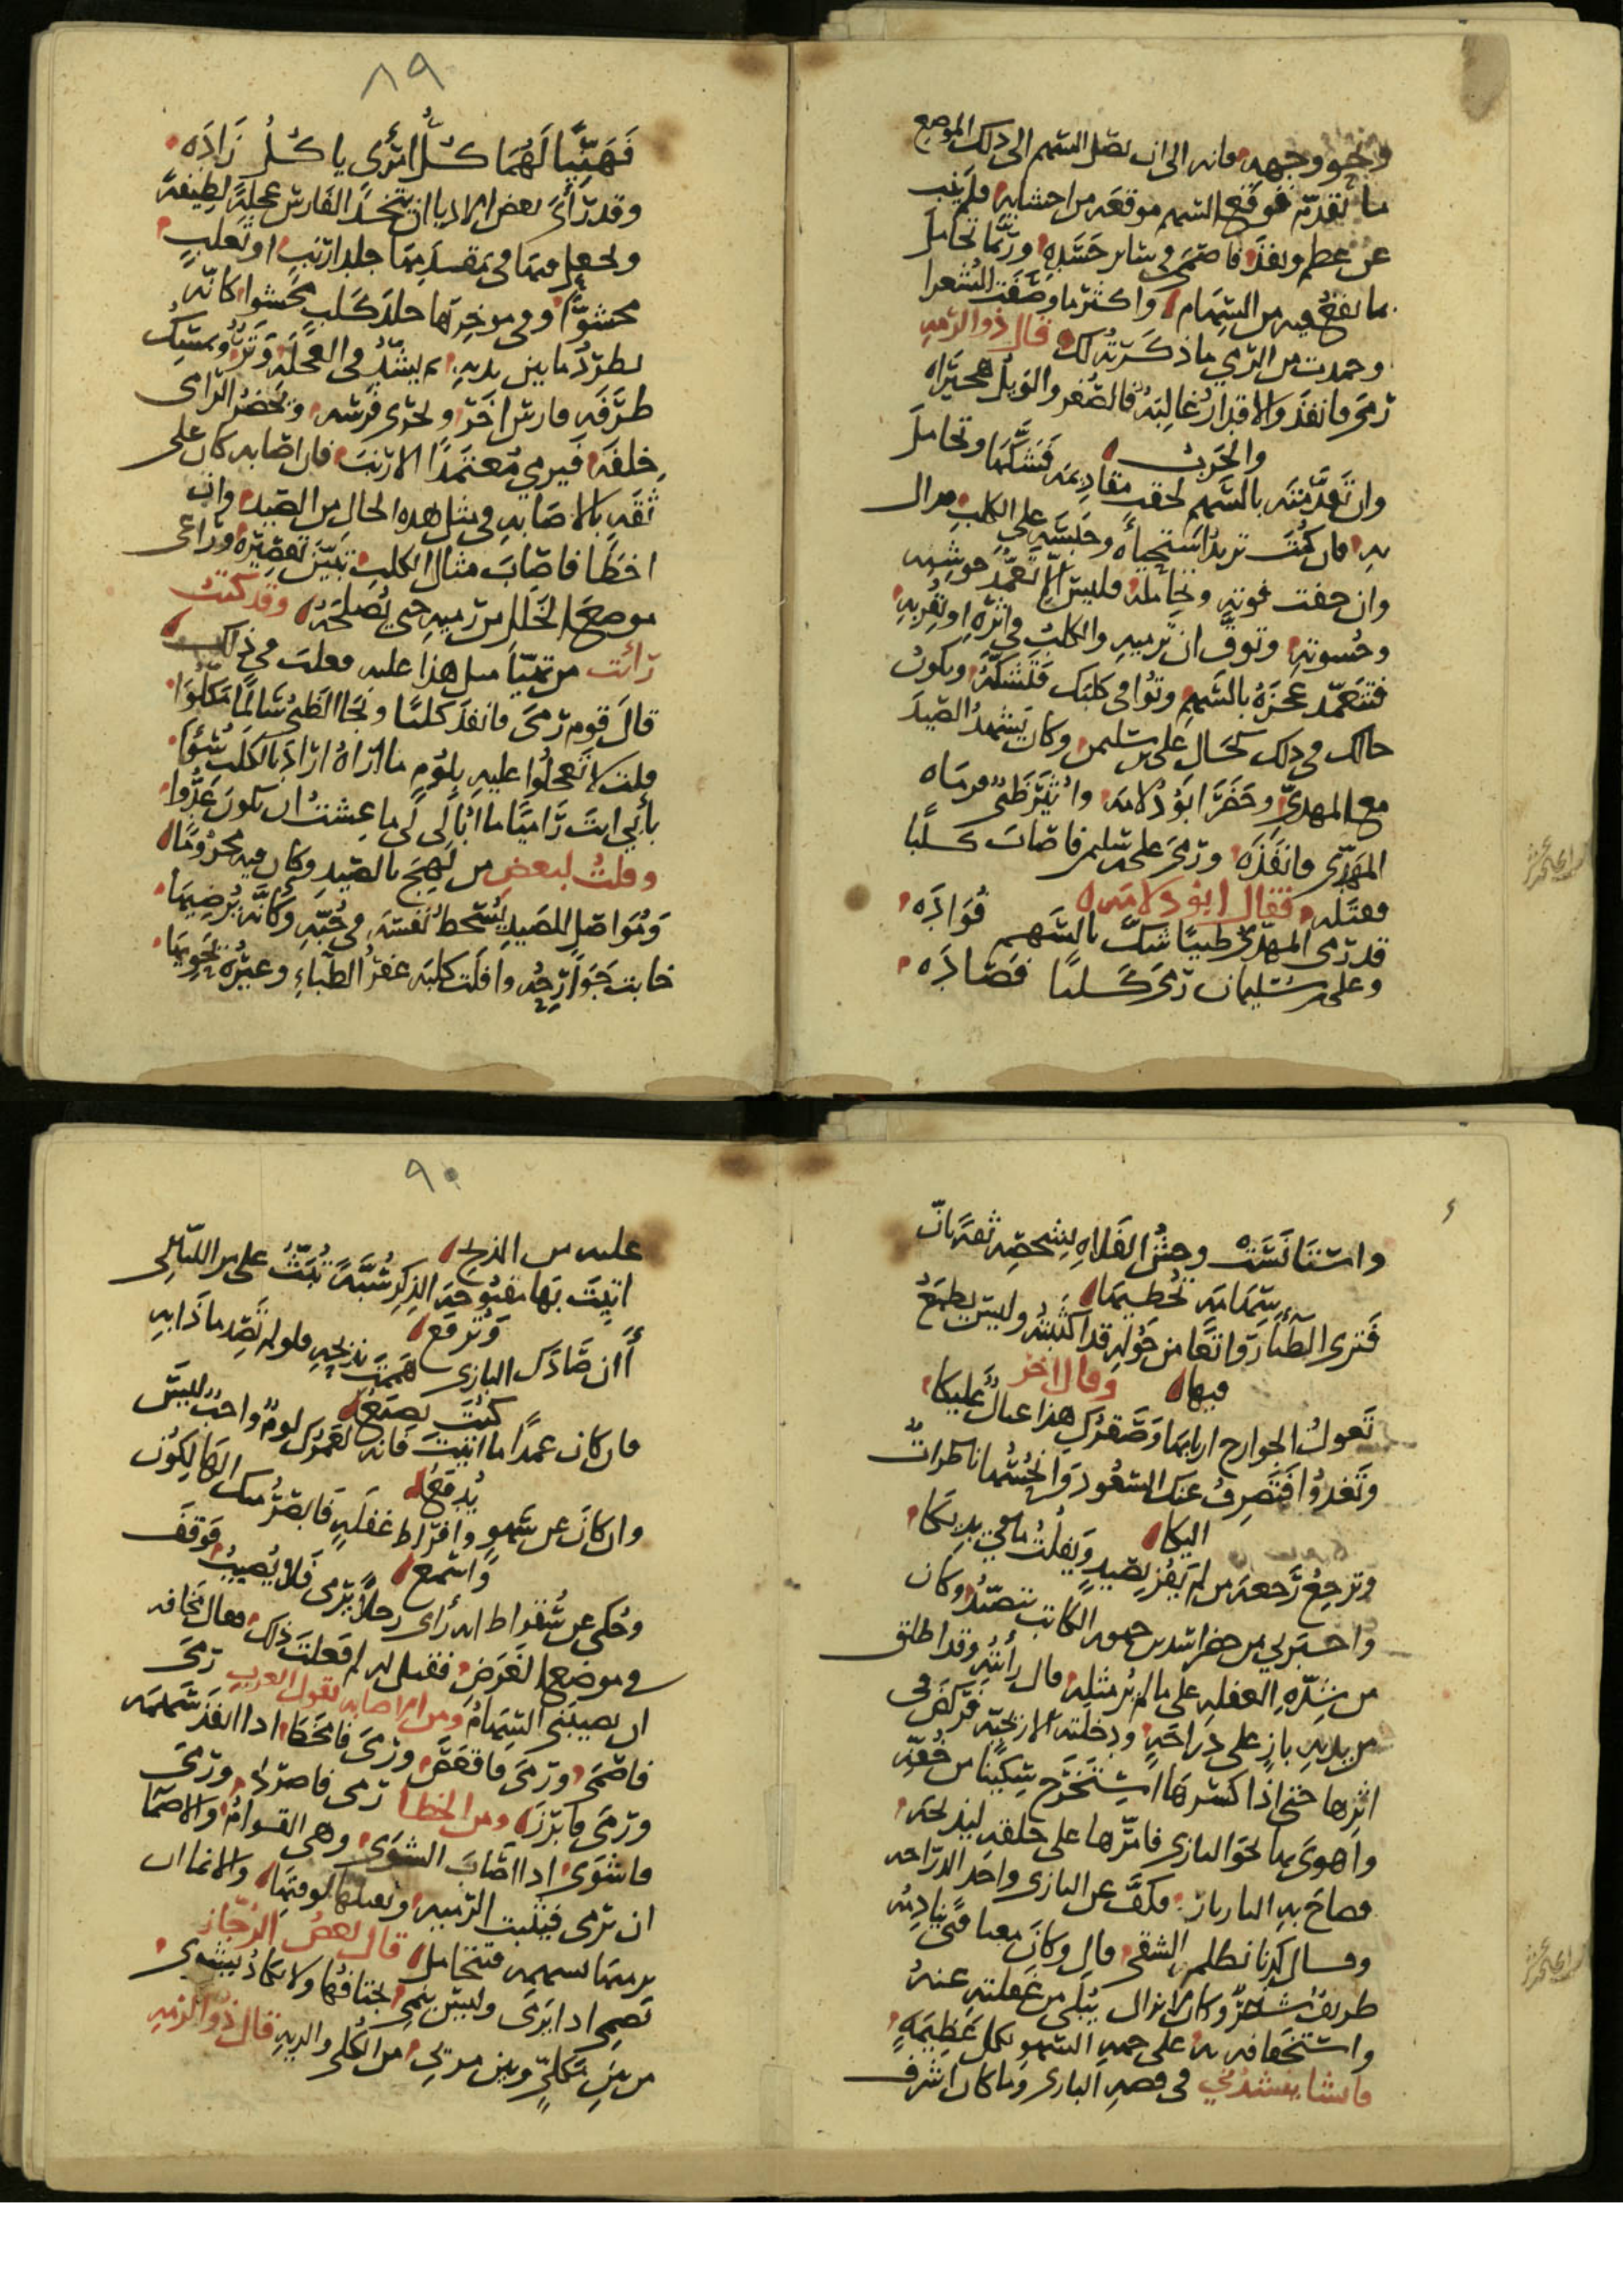 ونحو وجهه فانه الى ان يصل السهم الى ذلك الموضع
ما يتقدم فوقع السهم موقعه من احشايه فلم يغب
عن عظم ونفذ فاصمى في ساير جسده وربما تحامل
بما يقع فيه من السهام واكثر ما وصفت الشعرا
وحمدت من الرمي ما ذكرته لك قال ذو الرمه
رمى فانفذ والاقدار غالبة فالصعر والويل هجيراه
والحرب
وان تعدمته بالسهم لحقت مقاديمه فشكها وتحامل
به فان كنت تريد استحياءه وحبسته على الكلب
وان خفت فوته وتحامله فليس الا تعمد حوشيه
وحسوته وتوق ان ترميه والكلب في اثره او بقربه
فتتعمد عجزه بالسهم وتوافي كلبك فتشكه ويكون
حالك في ذلك كحال على بن سليمن وكان يشهد الصيد
مع المهدي وحضر ابو دلامه واثير ظبي فرماه
المهدي فانفذه ورمى على بن سليمن فاصاب كلبا
فقتله فقال ابو دلامه
قد رمى المهدي ظبيا شك بالسهم فؤاده
وعلى بن سليمان رمى كلبا فصاده
٨٩
فهنيا لهما كل امرى ياكل زاده
وقد رأى بعض الادبا ان يتخذ الفارس عجلة لطيفة
ويجعل فيها في مقدمها جلد ارنب او ثعلب
محشوا وفي موخرها جلد كلب محشوا كانه
يطرد ما بين يديه ثم يشد في العجلة وتر ويمسك
طرفه فارس اخر ويجرى فرسه ويحضر الرامى
خلفه فيرمي معتمدا الارنب فان اصابه كان على
ثقه بالاصابه في مثل هذه الحال من الصيد وان
اخطا فاصاب مثال الكلب تبين تقصيره وراعى
موضع الخلل من رميه حتى يصلحه وقد كنت
رأيت من تهيأ مثل هذا عليه فقلت في ذلك
قال قوم رمى فانفذ كلبا ونجا الظبي سالما مكلوا
قلت لا تعجلوا عليه بلوم ما اراه اراد بالكلب سوا
بأبي انت راميا ما ابالى لى ما عشت ان تكون عدوا
وقلت لبعض من لهج بالصيد وكان فيه محروما
ومواصل للصيد يسخط نفسه في حبه وكانه يرضيها
خابت جوارحه وافلت كلبه عفر الظباء وعيره يحويها
واستأنست وحش الفلاه لشخصه ثقة بان
سهامه تخطيها
فترى الظباء رواتعا من حوله قد اكثبته وليس يطمع
فيها وقال اخر
تعول الجوارح اربابها وصقرك هذا عيال عليكا
وتغدو افتصرف عنك السعود وانحسها ناظرات
اليكا
وترجع رجعة من لم يفز بصيد ويفلت ما في يديكا
واخبرني من حضر اشد من حمويه الكاتب يتصيد وكان
من شدة الغفله على ما لم ير مثله قال رأيته وقد اطلق
من يديه باز على دراجة ودخلته الاريحيه فركض في
اثرها حتى اذا كسرها استخرج سكينا من خفه
واهوى بها نحو البازى فامرها على حلقه ليذبحه
فصاح به البازيار فكف عن البازى واخذ الدراجه
وسال كرنا نظلم الشقى قال وكان معنا فتى ينادمه
ظريف شاعر وكان لا يزال يبلى من غفلته عنه
واستخفافه به على جهه السهو بكل عظيمة
فانشا ينشدني في قصه البازى وما كان اشرف
٩٠
عليه من الذبح
اتيت بها مقبوحة الذكر شبة تبث على مر الليالى
وترفع
أان صادك البازى هممت بذبحه فلو لم تصد ماذا به
كنت تصنع
فان كان عمدا ما اتيت فانه لعمرك لوم واحب ليس
يدفع
وان كان عن سهو وافراط غفلة فابصر منك الكالكون
واسمع
وحكى عن سقراط انه رأى رجلا يرمى فلا يصيب فوقف
في موضع الغرض فقيل له لم فعلت ذلك فقال مخافه
ان يصيبني السهام ومن الاصابه تقول العرب رمى
فاصمى ورمى فاقعص ورمى فامخط اذا انفذ سهمه
ورمى فابرز ومن الخطا رمى فاصرد ورمى
فاشوى اذا اصاب الشوى وهى القوايم والاصما
ان ترمى فيثبت الرميه ويقتلها لوقتها والانما ان
يرميها بسهمه فتتحامل قال بعض الرجاز
تصمى اذا يرمى وليس ينمى يجتافها ولا يكاد يشوى
من بين مكلي وبين موتى من الكلى والريه قال ذو الرمه